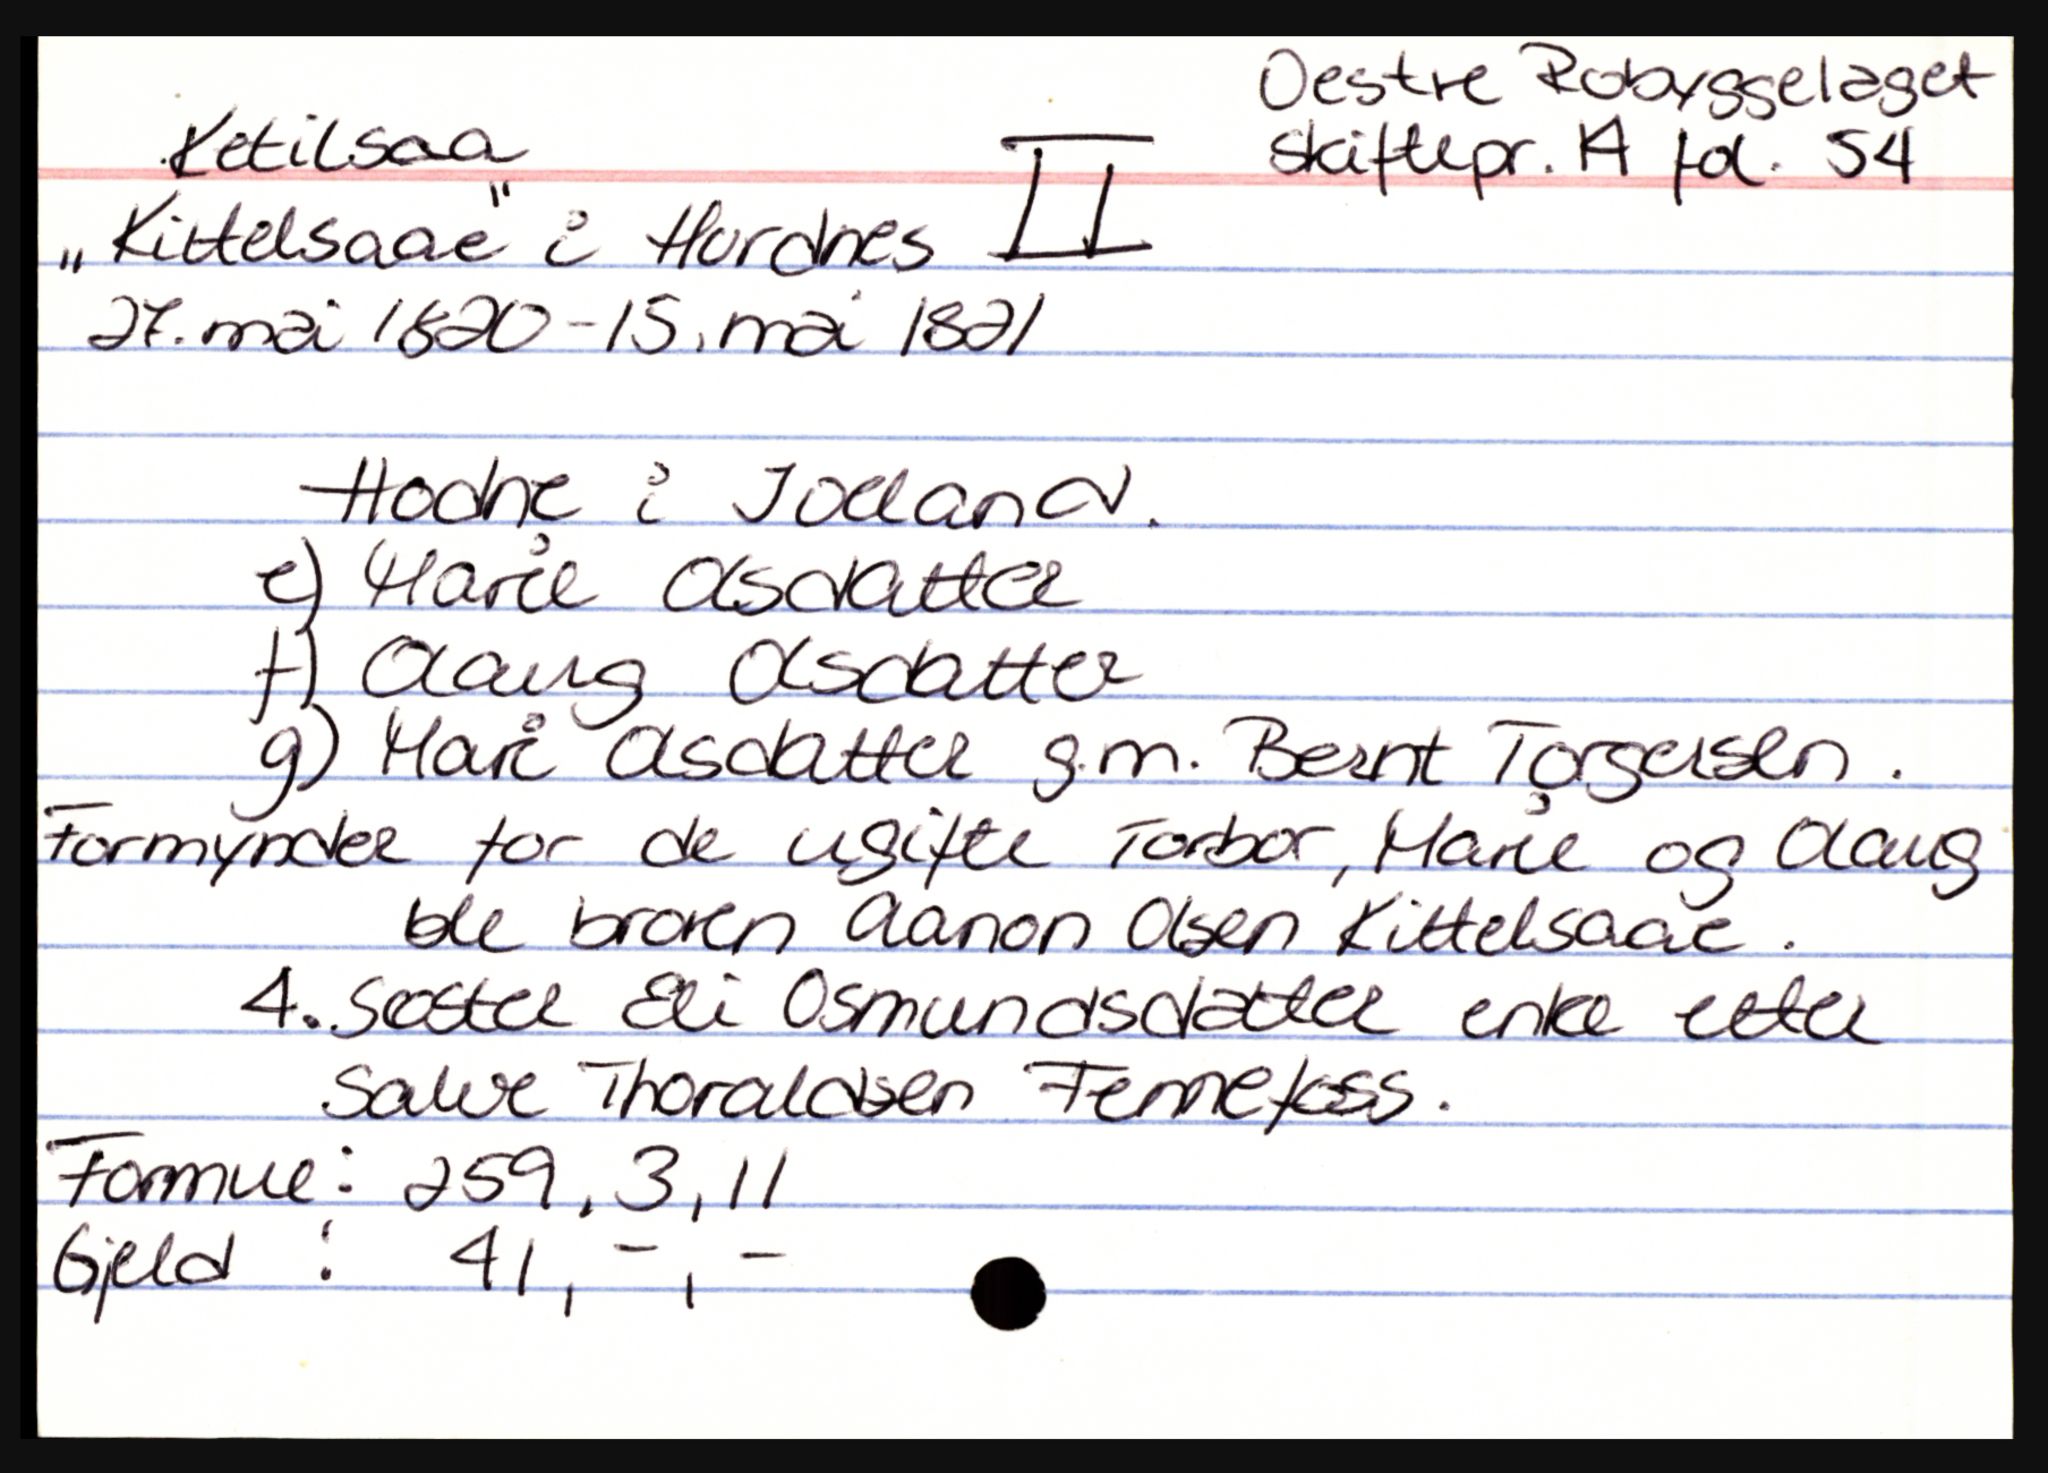 Oestre Robyggelaget
skiftepr. A fol. 54
Ketilsaa
II
„Kittelsaae" i Hordnes
27. mai 1820 - 15. mai 1821
Hodne i Joeland.
e) Marie Olsdatter
f) Olaug Olsdatter
g) Mari Olsdatter g.m. Bernt Torgersen.
Formynder for de ugifte Torbor, Marie og Olaug
ble broren Aanon Olsen Kittelsaae.
4. Søster Eli Osmundsdatter enke etter
Salve Thoraldsen Fennefoss.
Formue: 259, 3, 11
Gjeld : 41, -, -